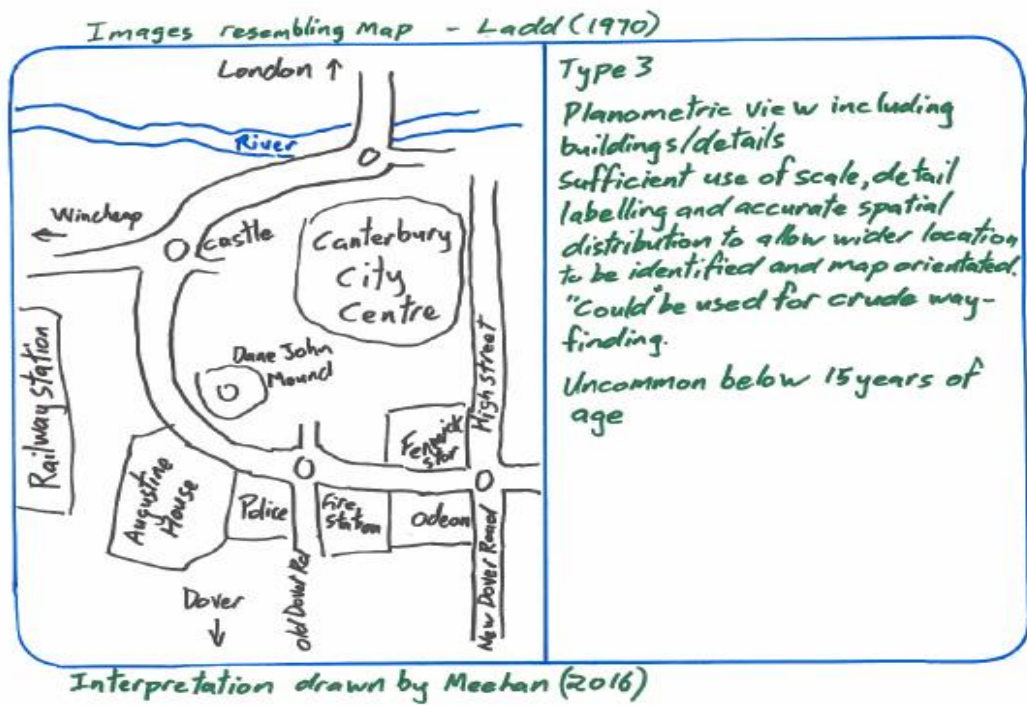 Images resembling Map - Ladd (1970)
London ↑
River
← Wincheap
Castle
Canterbury
City
Centre
Railway Station
Dane John
Mound
High Street
Fenwick
stor
Augustine
House
Police
Fire
station
Odeon
Old Dover Rd
New Dover Road
Dover
↓
Type 3
Planometric view including
buildings/details
Sufficient use of scale, detail
labelling and accurate spatial
distribution to allow wider location
to be identified and map orientated.
"Could" be used for crude way-
finding.
Uncommon below 15 years of
age
Interpretation drawn by Meehan (2016)